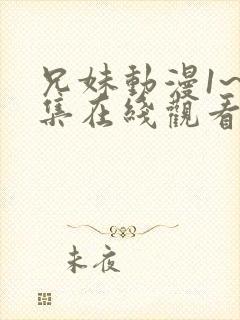 兄妹動漫1~
集在綫觀看
未夜